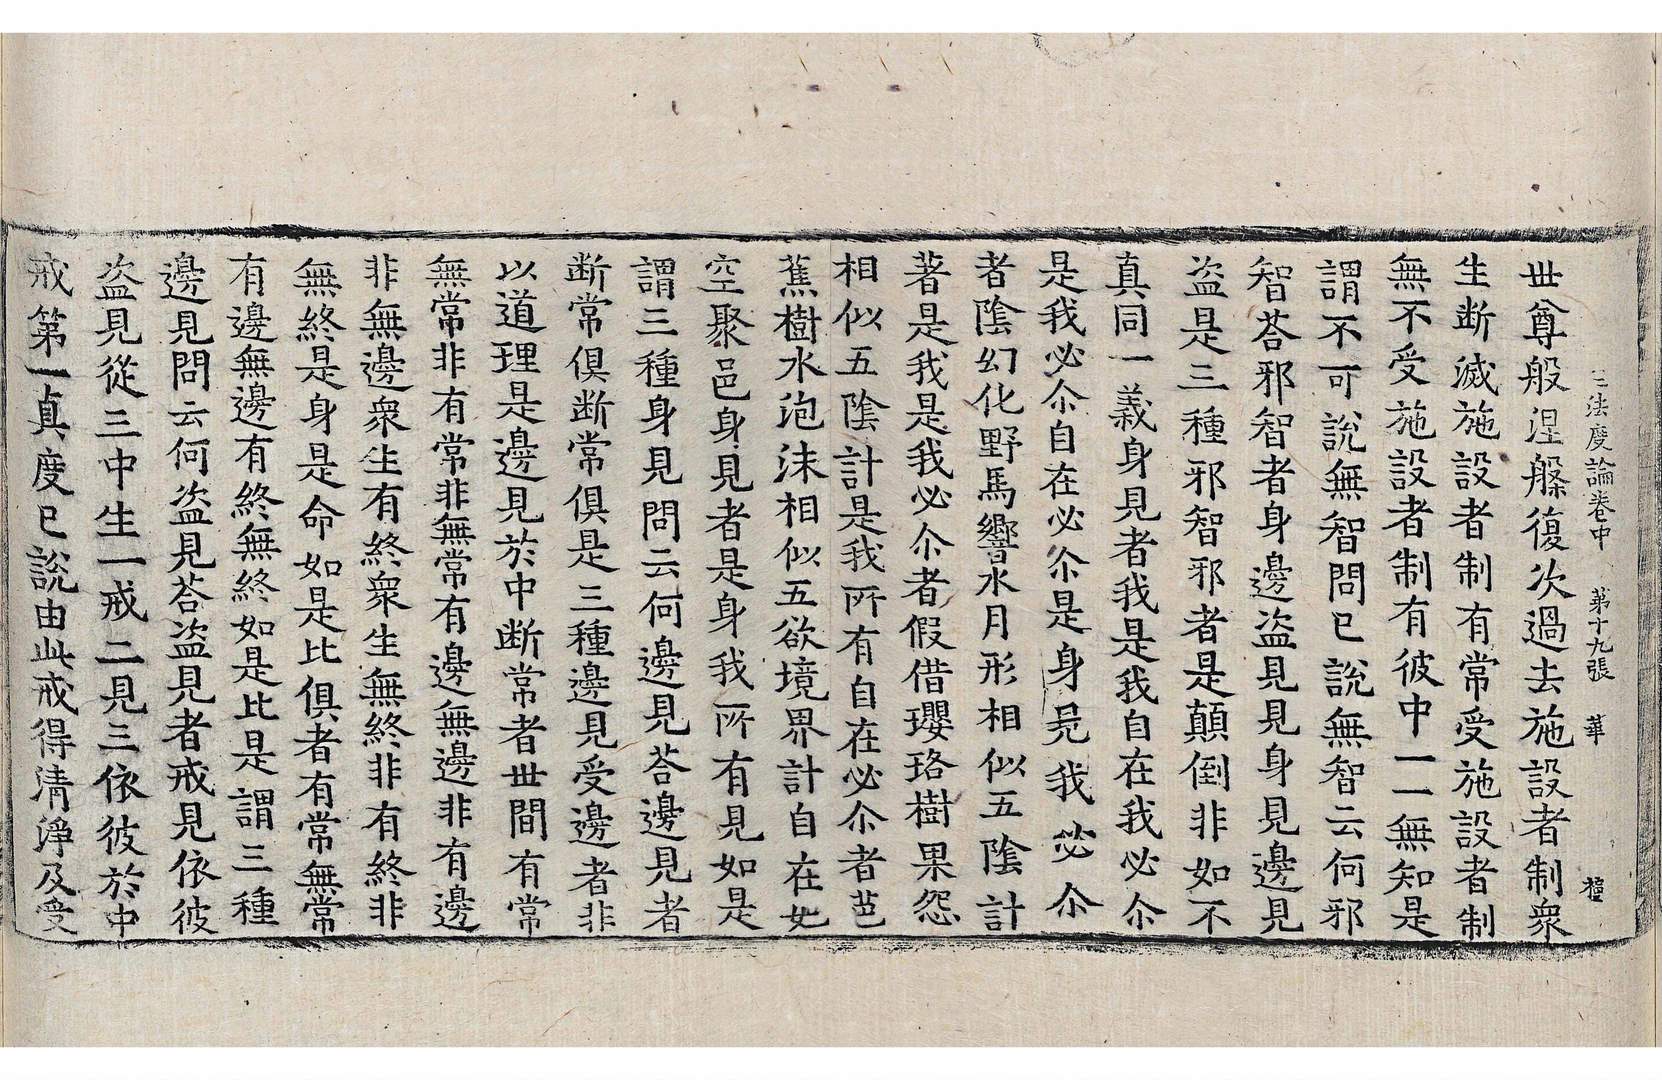 三法度論卷中 第十九張 華 檀
世尊般涅槃復次過去施設者制衆
生断滅施設者制有常受施設者制
無不受施設者制有彼中一一無知是
謂不可說無智問已說無智云何邪
智荅邪智者身邊盗見見身見邊見
盗是三種邪智邪者是顛倒非如不
真同一義身見者我是我自在我必尒
是我必尒自在必尒是身見我必尒
者陰幻化野馬響水月形相似五陰計
著是我是我必尒者假借瓔珞樹果怨
相似五陰計是我所有自在必尒者芭
蕉樹水泡沫相似五欲境界計自在如
空聚邑身見者是身我所有見如是
謂三種身見問云何邊見荅邊見者
断常俱断常俱是三種邊見受邊者非
以道理是邊見於中断常者世間有常
無常非有常非無常有邊無邊非有邊
非無邊衆生有終衆生無終非有終非
無終是身是命如是比俱者有常無常
有邊無邊有終無終如是比是謂三種
邊見問云何盗見荅盗見者戒見依彼
盗見從三中生一戒二見三依彼於中
戒第一真度已說由此戒得清淨及受